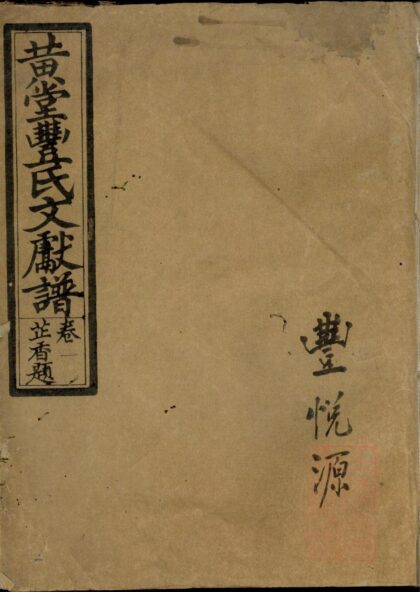 黄堂豐氏文獻譜
卷一
芷香題
豐悅源